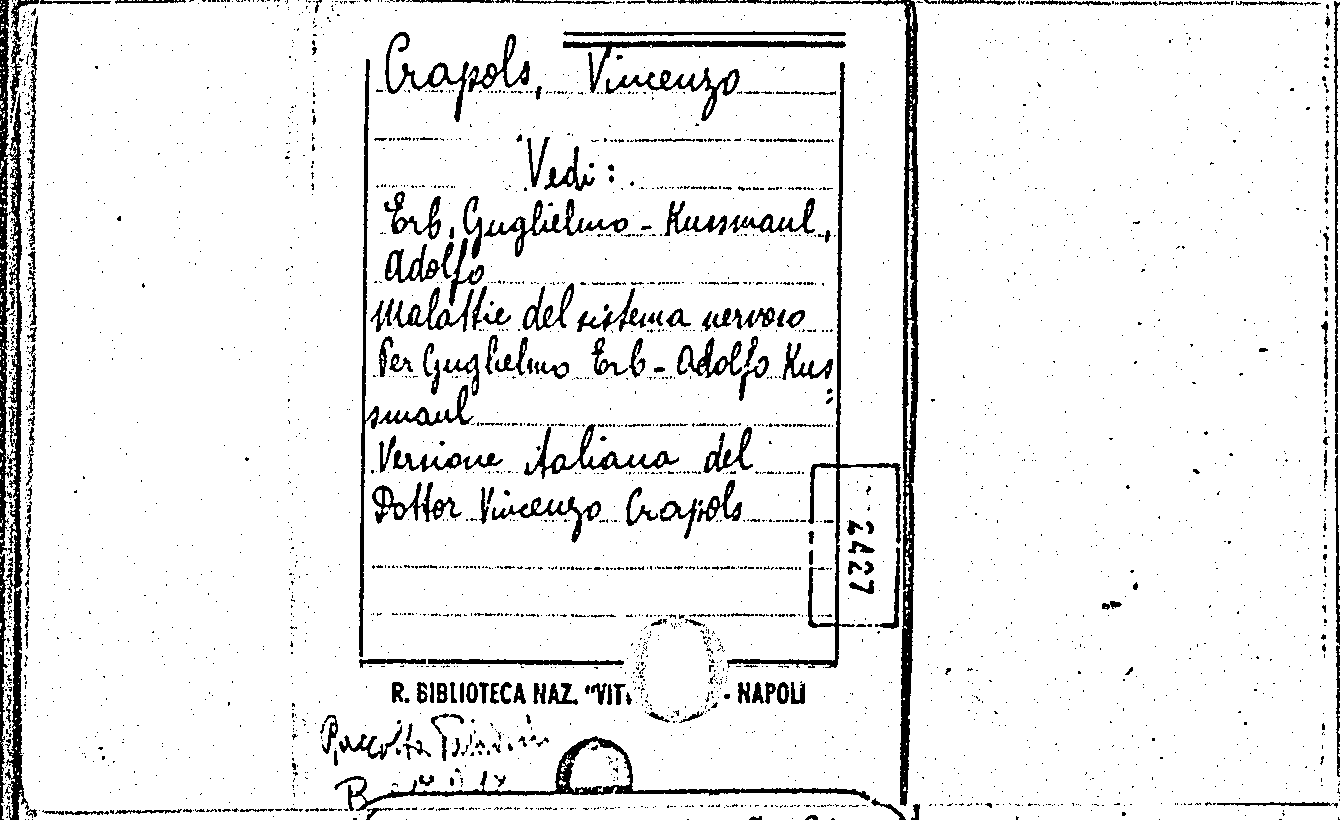 Crapols, Vincenzo
Vedi :
Erb, Guglielmo - Kussmaul,
Adolfo
Malattie del sistema nervoso
Per Guglielmo Erb - Adolfo Kus
=
smaul
Versione italiana del
Dottor Vincenzo Crapols
2427
R. BIBLIOTECA NAZ. "VIT - NAPOLI
Raccolta
B